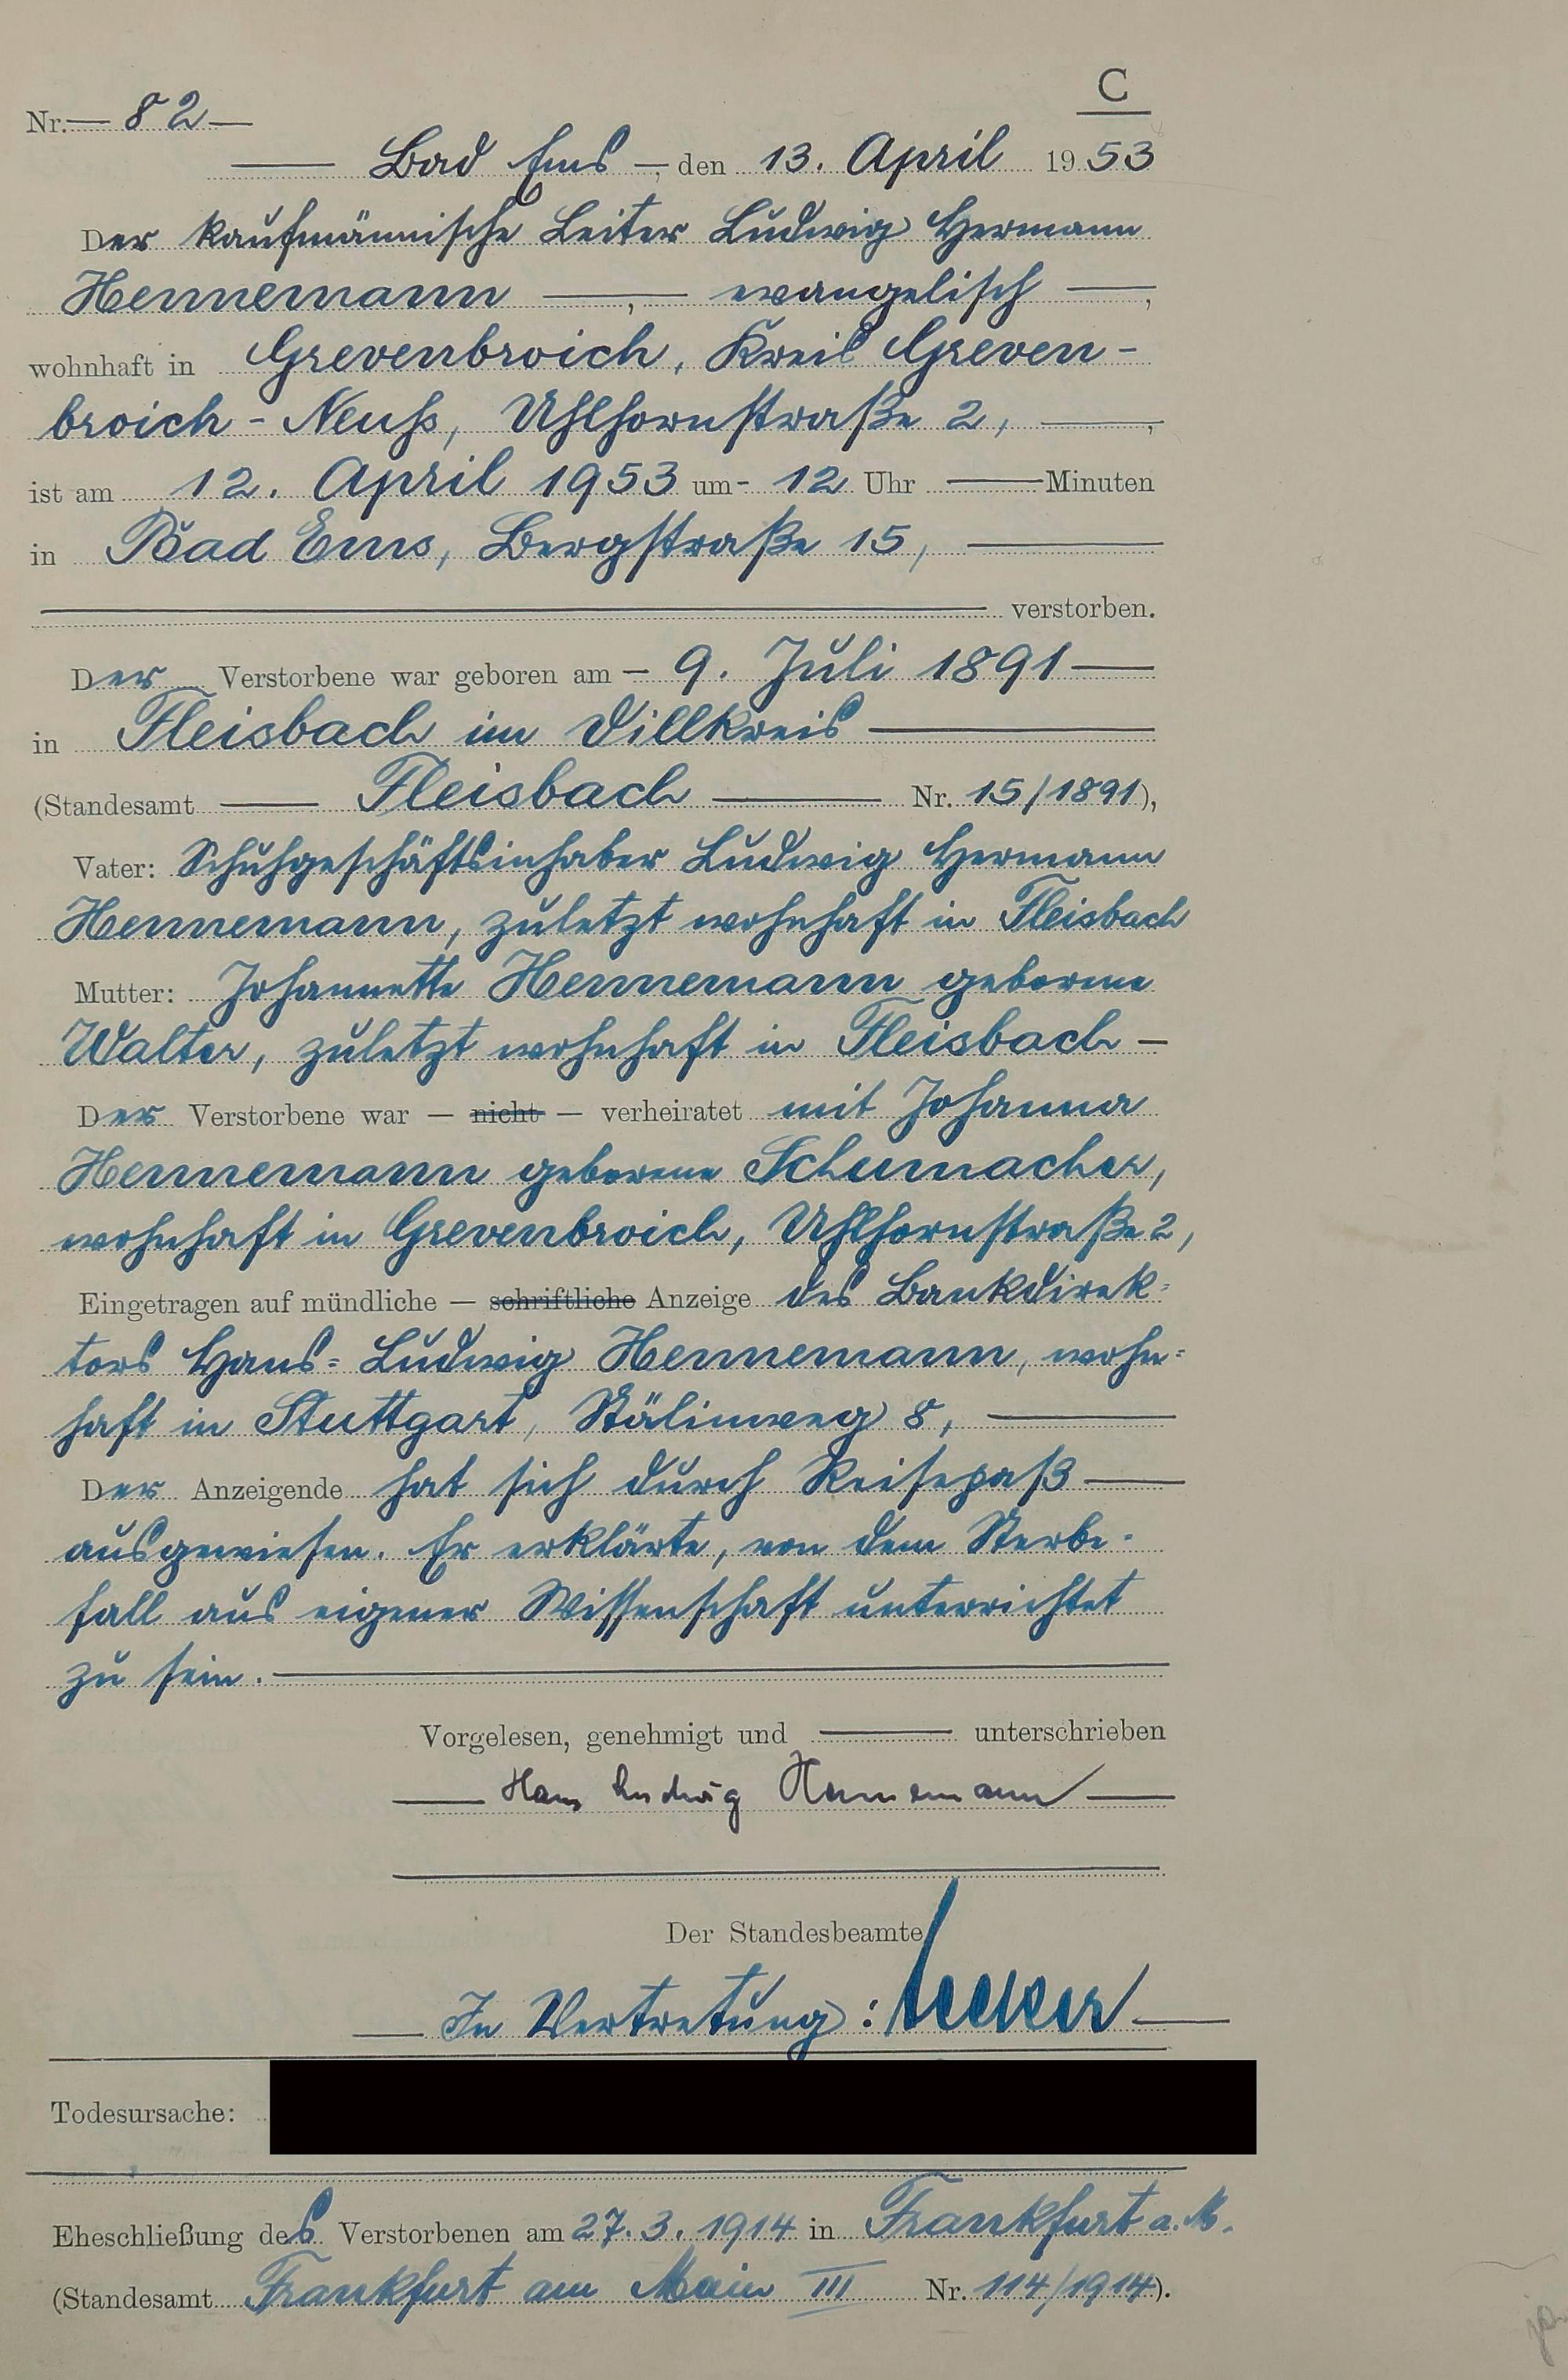 C
Nr. 82
Bad Ems, den 13. April 1953
Der kaufmännische Leiter Ludwig Hermann
Hennemann, evangelisch,
wohnhaft in Grevenbroich, Kreis Greven-
broich-Neuß, Uhlhornstraße 2,
ist am 12. April 1953 um 12 Uhr Minuten
in Bad Ems, Bergstraße 15,
verstorben.
Der Verstorbene war geboren am 9. Juli 1891
in Fleisbach im Dillkreis
(Standesamt Fleisbach Nr. 15/1891),
Vater: Schuhgeschäftsinhaber Ludwig Hermann
Hennemann, zuletzt wohnhaft in Fleisbach
Mutter: Johannette Hennemann geborene
Walter, zuletzt wohnhaft in Fleisbach
Der Verstorbene war — nicht — verheiratet mit Johanna
Hennemann geborene Schumacher,
wohnhaft in Grevenbroich, Uhlhornstraße 2,
Eingetragen auf mündliche — schriftliche Anzeige des Bankdirek=
tors Hans=Ludwig Hennemann, wohn=
haft in Stuttgart, Stälinweg 8,
Der Anzeigende hat sich durch Reisepaß
ausgewiesen. Er erklärte, von dem Sterbe-
fall aus eigener Wissenschaft unterrichtet
zu sein.
Vorgelesen, genehmigt und unterschrieben
Hans Ludwig Hennemann
Der Standesbeamte
In Vertretung:
Todesursache:
Eheschließung des Verstorbenen am 27.3.1914 in Frankfurt a.M.
(Standesamt Frankfurt am Main III Nr. 114/1914).